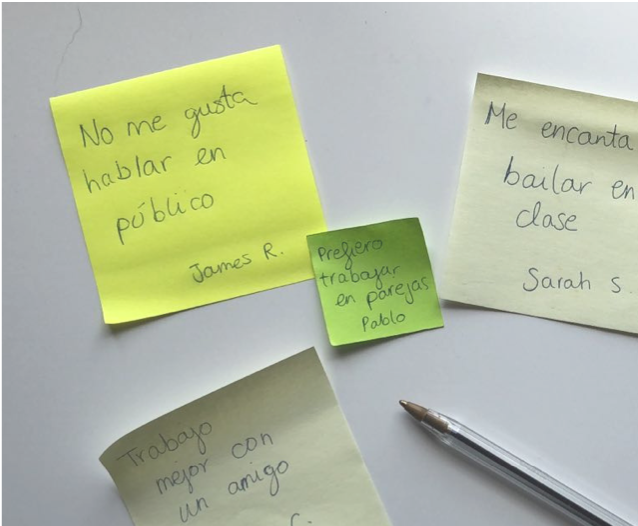 No me gusta
hablar en
público
James R.
Prefiero
trabajar
en parejas
Pablo
Me encanta
bailar en
clase
Sarah S.
Trabajo
mejor con
un amigo